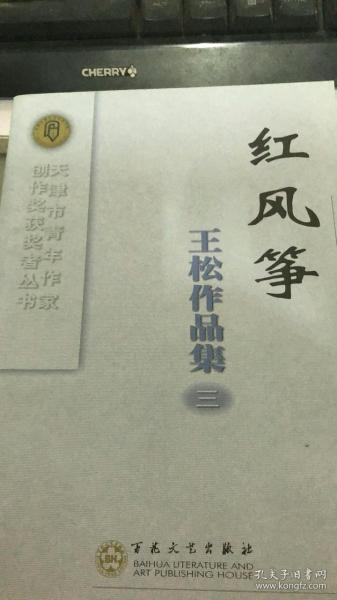 CHERRY
红风筝
王松作品集
三
天津市青年作家
创作奖获奖者丛书
百花文艺出版社
BAIHUA LITERATURE AND
ART PUBLISHING HOUSE
BH
孔夫子旧书网